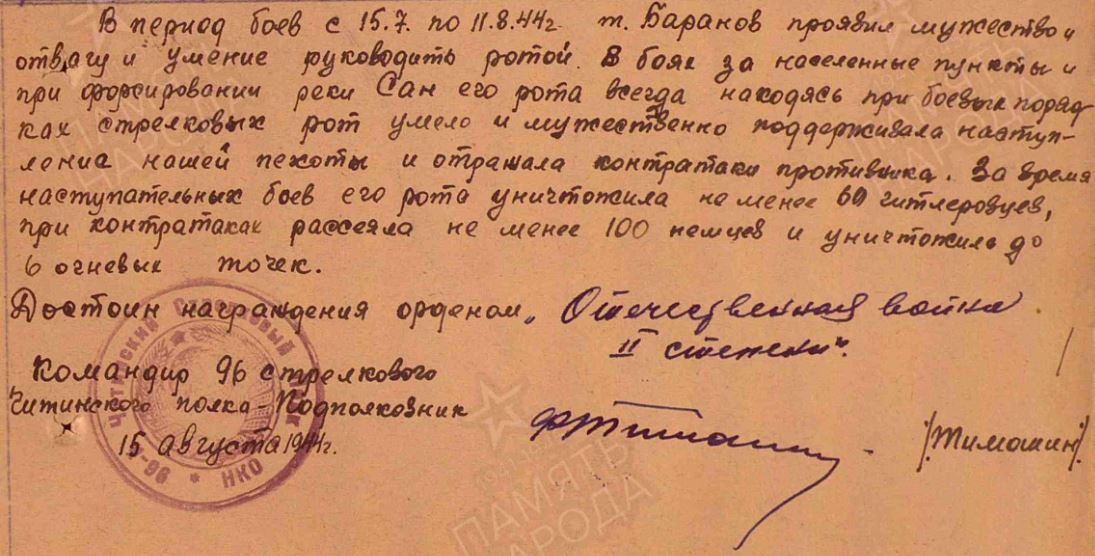 В период боев с 15.7. по 11.8.44г. т. Баранов проявил мужество и
отвагу и умение руководить ротой. В боях за населенные пункты и
при форсировании реки Сан его рота всегда находясь при боевых поряд-
ках стрелковых рот умело и мужественно поддерживала наступ-
ления нашей пехоты и отражала контратаки противника. За время
наступательных боев его рота уничтожила не менее 60 гитлеровцев,
при контратаках рассеяла не менее 100 немцев и уничтожила до
6 огневых точек.
Достоин награждения орденом „Отечественная война
II степени".
Командир 96 стрелкового
Читинского полка - Подполковник
/Тимошин/.
15 августа 1944г.
ЧИТИНСКИЙ СТРЕЛКОВЫЙ ПОЛК
-96 * НКО
ПАМЯТЬ
НАРОДА